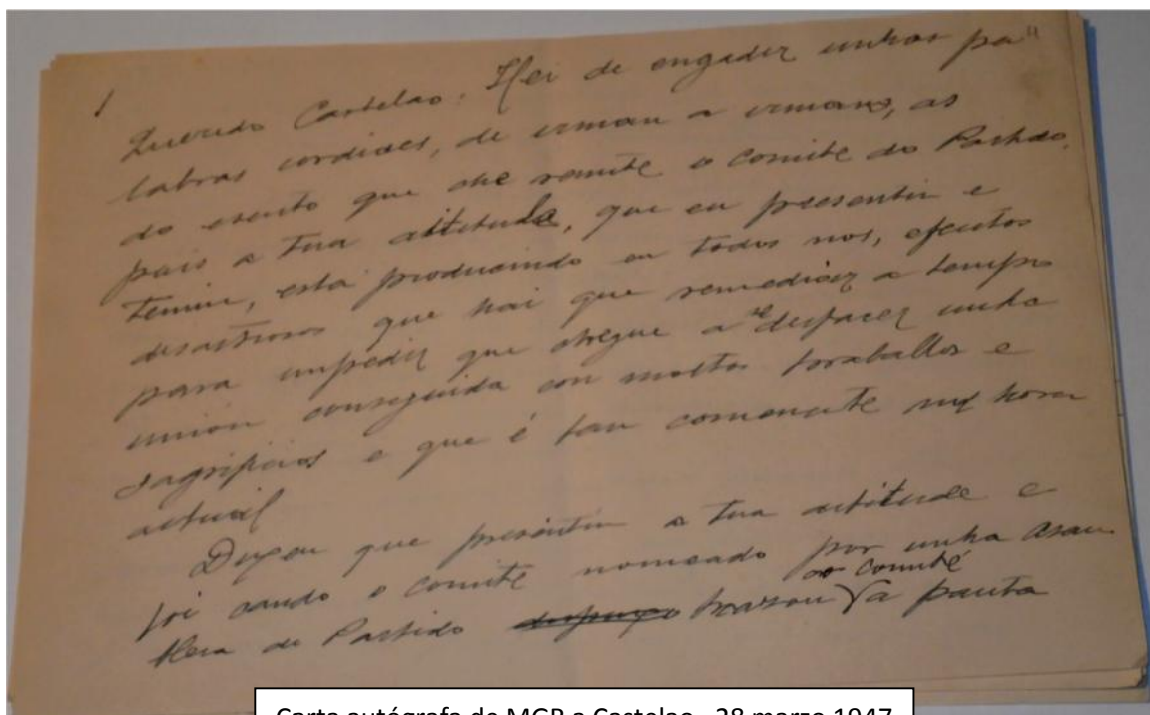 1
Querido Castelao. Hei de engadir unhas pa"
labras cordiaes, de irman a irmano, as
do escrito que che remite o Comite do Partido,
pois a tua actitude, que eu presentin e
temin, esta producindo en todos nos, efeutos
desastrosos que hai que remediar a tempo
para impedir que chegue a desfacer unha
union conseguida con moitos traballos e
sagrificios e que é tan comenente na hora
actual
Digo que presentin a tua actitude e
foi cando o comité nomeado por unha asam
blea de Partido trazou ao comité a pauta
Carta autógrafa de MGB a Castelao 28 marzo 1947